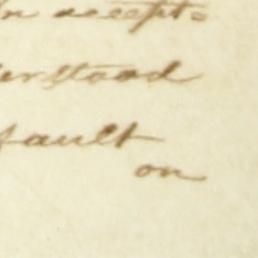 accept=
erstood
fault
on